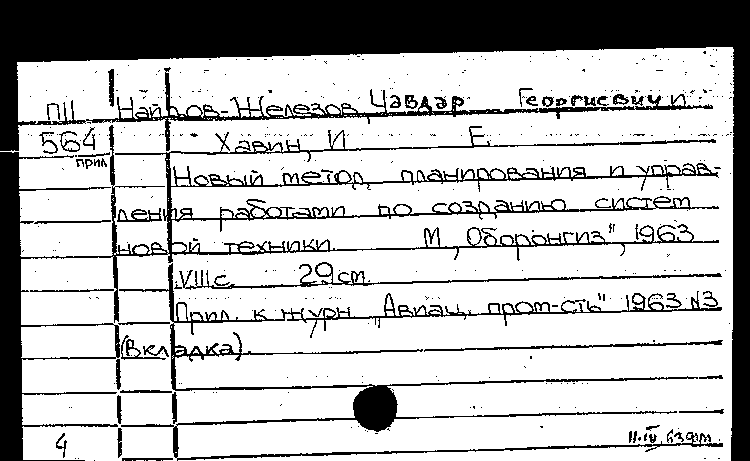 П11 Найров-Железов, Чавдар Георгиевич и
564 Хавин, И Е.
прил
Новый метод планирования и управ-
ления работами по созданию систем
новой техники. М, „Оборонгиз", 1963
VIII с. 29 см.
Прил. к журн „Авиац. пром-сть" 1963 N3
(Вкладка).
4